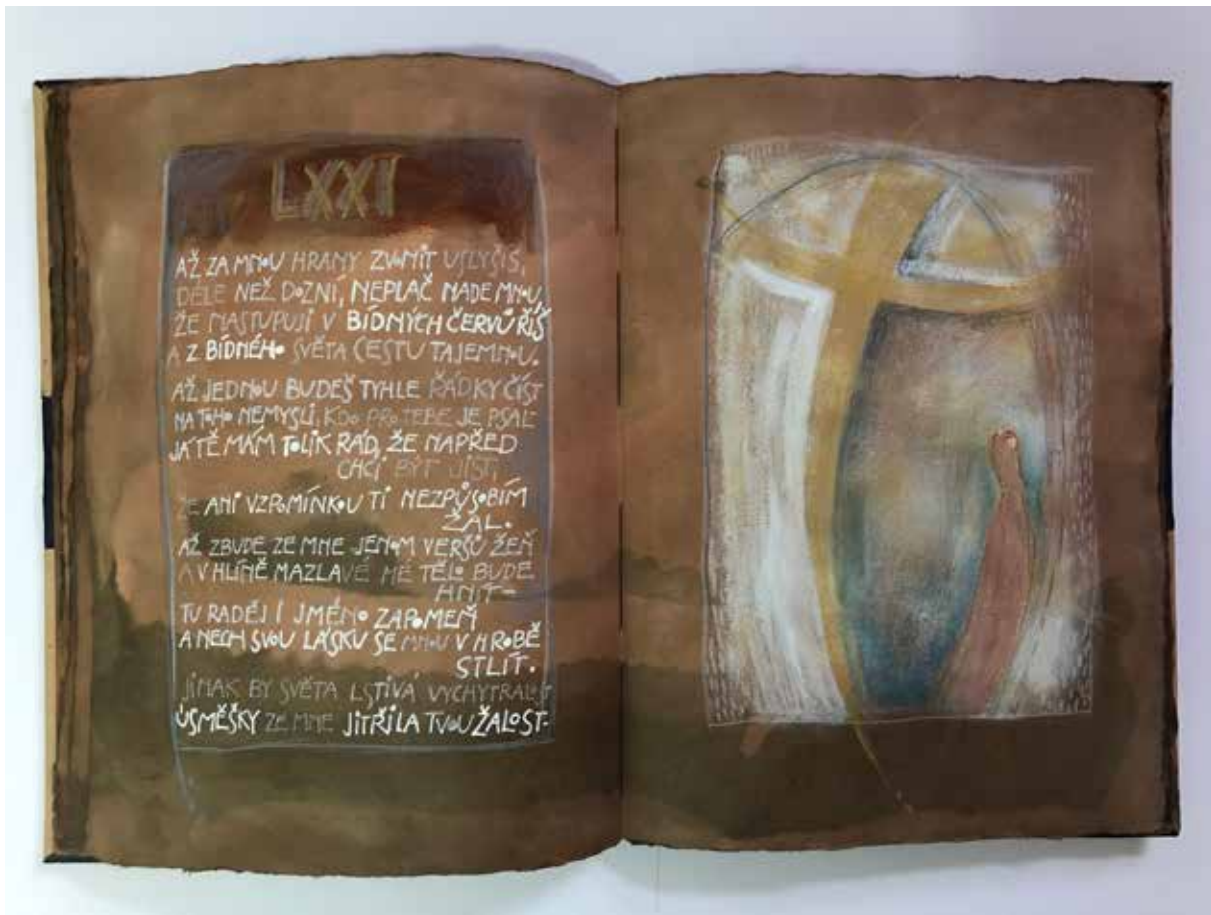 LXXI
AŽ ZA MNOU HRANY ZVONIT USLYŠÍŠ,
DÉLE NEŽ DOZNÍ, NEPLAČ NADE MNOU,
ŽE NASTUPUJI V BÍDNÝCH ČERVŮ ŘÍŠ
A Z BÍDNÉHO SVĚTA CESTU TAJEMNOU.
AŽ JEDNOU BUDEŠ TYHLE ŘÁDKY ČÍST
NA TOHO NEMYSLI, KDO PRO TEBE JE PSAL
JÁ TĚ MÁM TOLIK RÁD, ŽE NAPŘED
CHCI BÝT JIST,
ŽE ANI VZPOMÍNKOU TI NEZPŮSOBÍM
ŽAL.
AŽ ZBUDE ZE MNE JENOM VERŠŮ ŽEŇ
A V HLÍNĚ MAZLAVÉ MÉ TĚLO BUDE
HNÍT-
TU RADĚJ I JMÉNO ZAPOMEŇ
A NECH SVOU LÁSKU SE MNOU V HROBĚ
STLÍT.
JINAK BY SVĚTA LSTIVÁ VYCHYTRALOST
ÚSMĚŠKY ZE MNE JITŘILA TVOU ŽALOST-